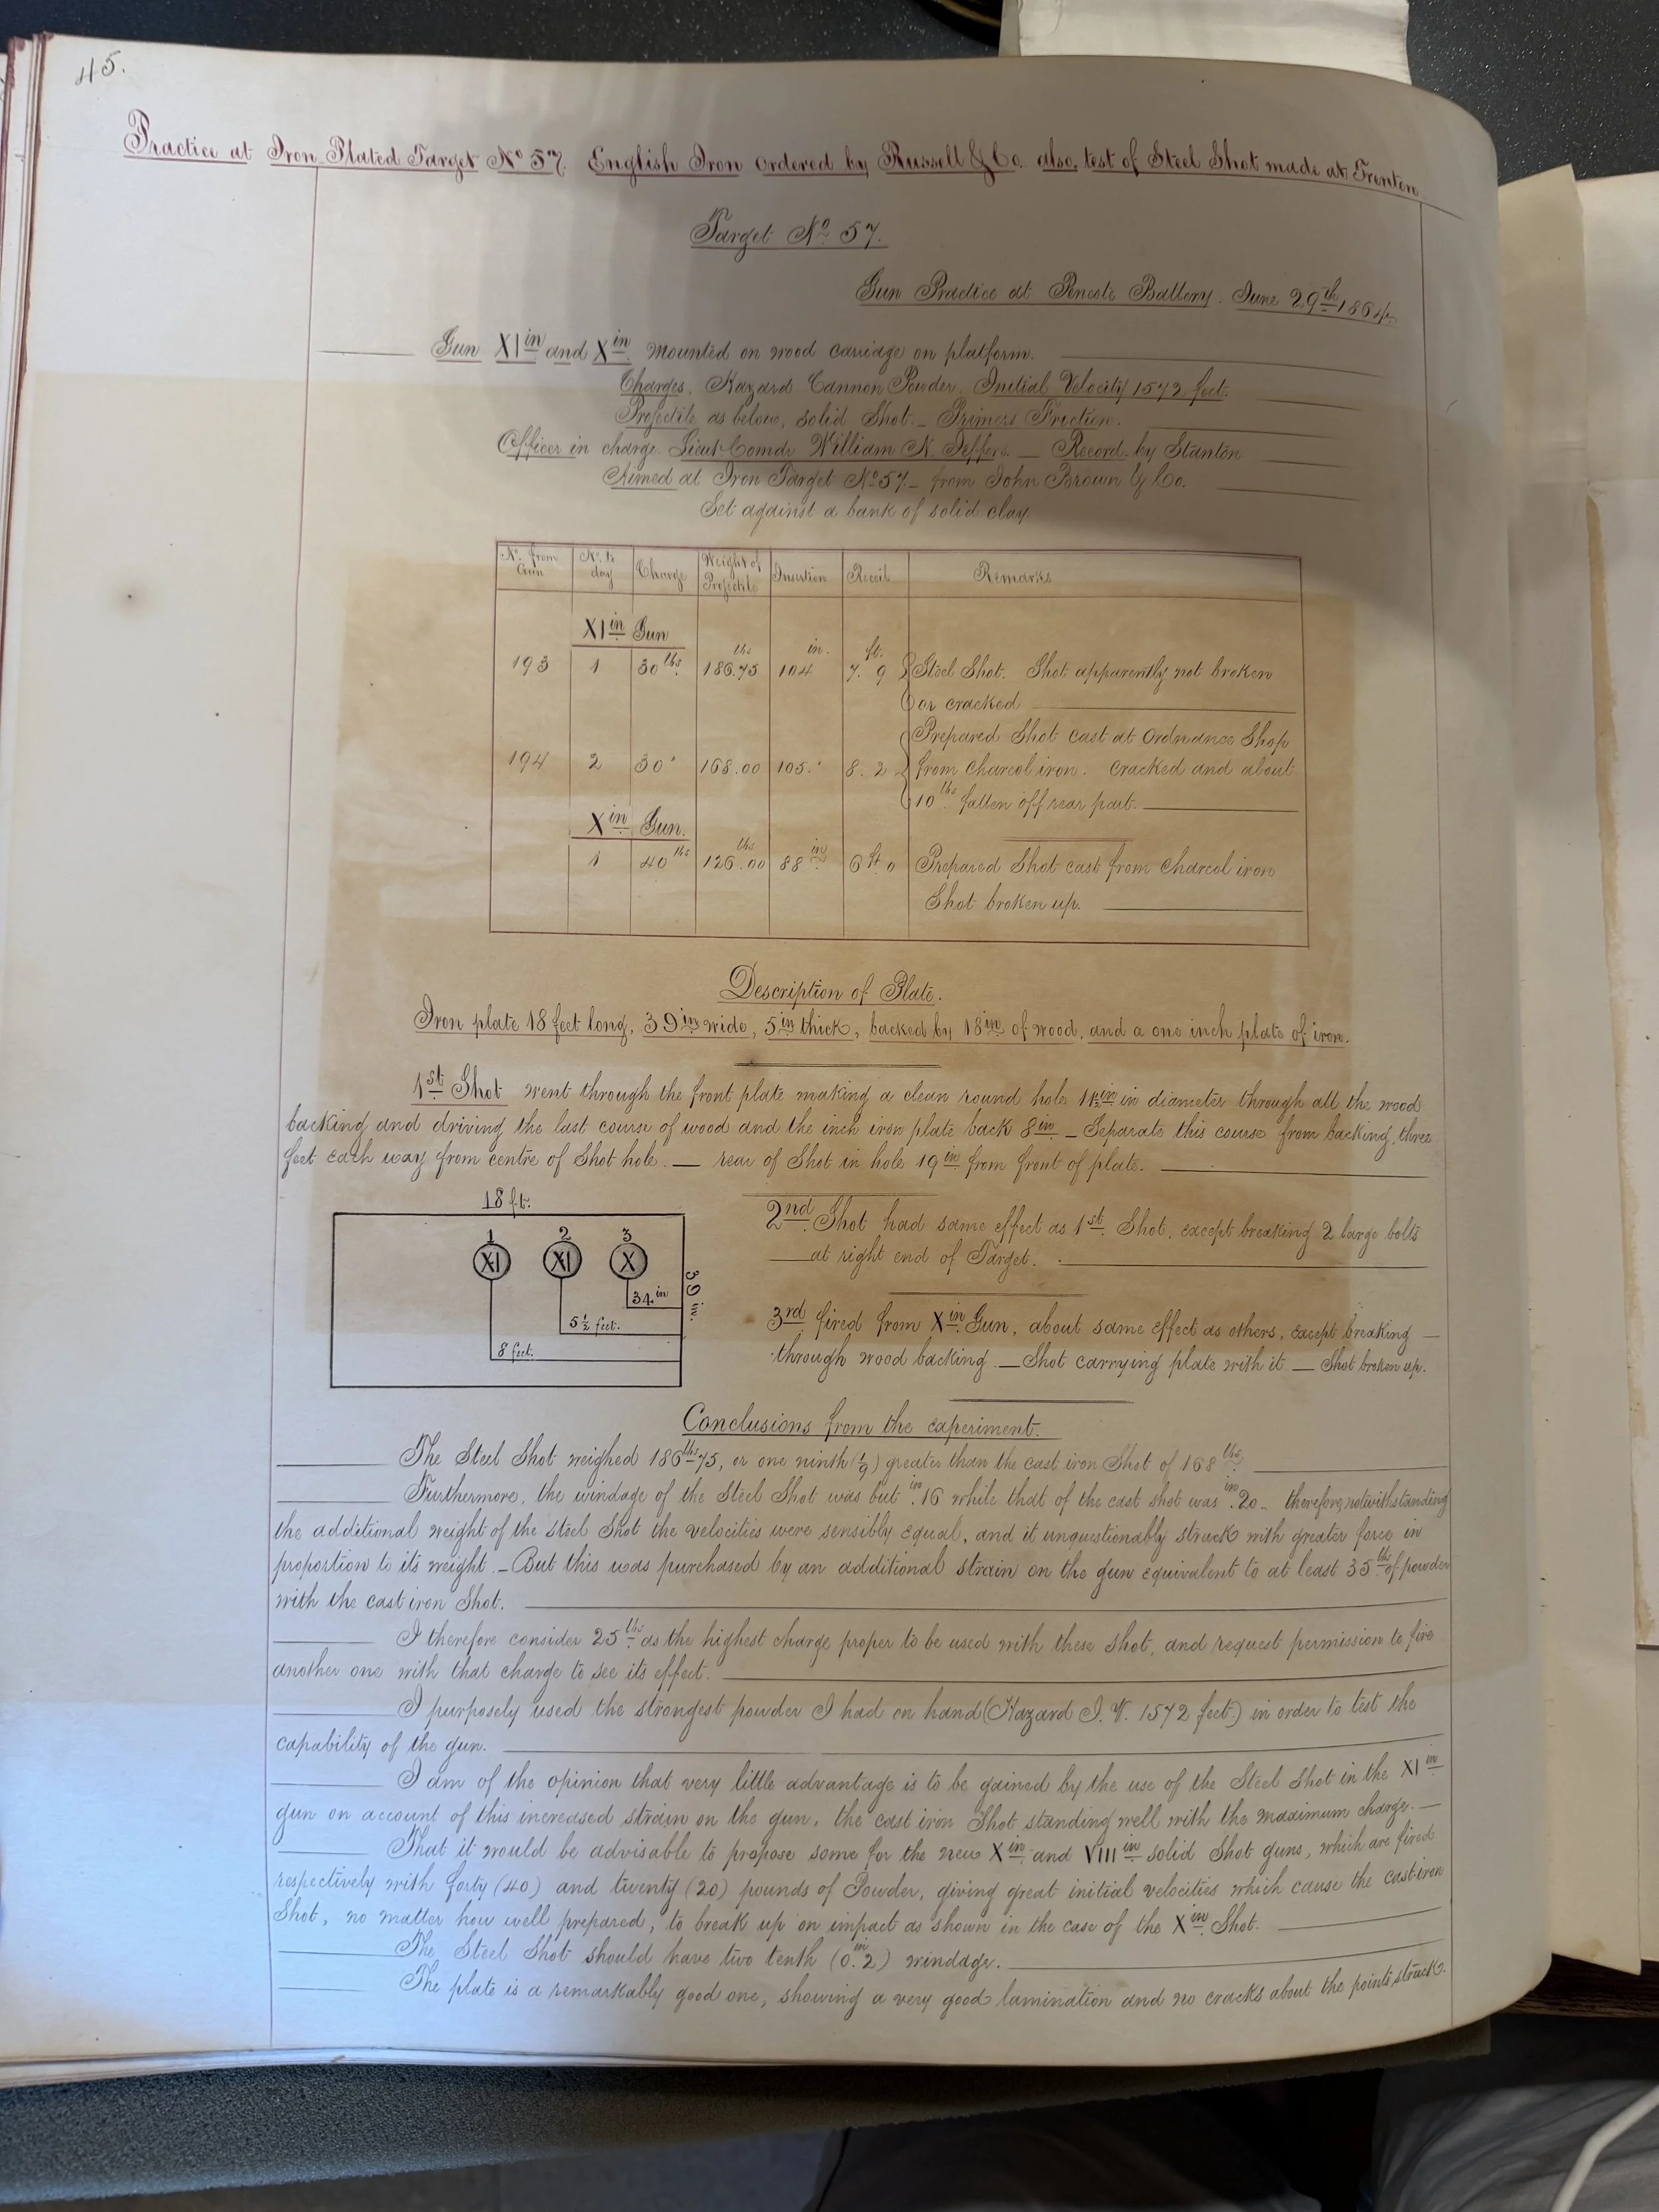 45.
Practice at Iron Plated Target No 57. English Iron ordered by Russell & Co. also, test of Steel Shot made at Trenton
Target No 57.
Gun Practice at Battery. June 29th 1864.
Gun XI in and X in mounted on wood carriage on platform.
Charges. Hazard Cannon Powder. Initial Velocity 1572 feet.
Projectile as below, solid Shot. – Primers Friction.
Officer in charge Lieut. Comdr. William N. Jeffers. — Record by Stanton
Aimed at Iron Target No 57 – from John Brown & Co.
Set against a bank of solid clay.
No. from Gun | No. to day | Charge | Weight of Projectile | Insertion | Recoil | Remarks
XI in Gun
193 | 1 | 30 lbs. | lbs 186.75 | in. 104 | ft. 7. 9 | Steel Shot. Shot apparently not broken
or cracked
Prepared Shot cast at Ordnance Shop
194 | 2 | 30 " | 168.00 | 105. " | 8. 2 | from charcol iron. cracked and about
10 lbs fallen off rear part.
X in Gun.
1 | 40 lbs | lbs 126.00 | 88 in | 6 ft. 0 | Prepared Shot cast from charcol iron
Shot broken up.
Description of Plate.
Iron plate 18 feet long, 39 in wide, 5 in thick, backed by 18 in of wood, and a one inch plate of iron.
1st Shot went through the front plate making a clean round hole in diameter through all the wood
backing and driving the last course of wood and the inch iron plate back 8 in – Separate this course from backing, three
feet each way from centre of Shot hole. — rear of Shot in hole 19 in from front of plate.
18 ft.
1 2 3
XI XI X
39 in.
34 in
5 ½ feet.
8 feet.
2nd Shot had same effect as 1st Shot, except breaking 2 large bolts
at right end of Target.
3rd fired from X in Gun, about same effect as others, except breaking
through wood backing. — Shot carrying plate with it — Shot broken up.
Conclusions from the experiment.
The Steel Shot weighed 186 lbs 75, or one ninth (1/9) greater than the cast iron Shot of 168 lbs.
Furthermore, the windage of the Steel Shot was but in .16 while that of the cast shot was in .20 – therefore, notwithstanding
the additional weight of the steel Shot the velocities were sensibly equal, and it unquestionably struck with greater force in
proportion to its weight. – But this was purchased by an additional strain on the gun equivalent to at least 35 lbs of powder
with the cast iron Shot.
I therefore consider 25 lbs as the highest charge proper to be used with these shot, and request permission to fire
another one with that charge to see its effect.
I purposely used the strongest powder I had on hand (Hazard I. V. 1572 feet.) in order to test the
capability of the gun.
I am of the opinion that very little advantage is to be gained by the use of the Steel Shot in the XI in
gun on account of this increased strain on the gun, the cast iron Shot standing well with the maximum charge. —
That it would be advisable to propose some for the new X in and VIII in solid Shot guns, which are fired
respectively with forty (40) and twenty (20) pounds of Powder, giving great initial velocities which cause the cast iron
Shot, no matter how well prepared, to break up on impact as shown in the case of the X in Shot.
The Steel Shot should have two tenth (0 in .2) windage.
The plate is a remarkably good one, showing a very good lamination and no cracks about the points struck.